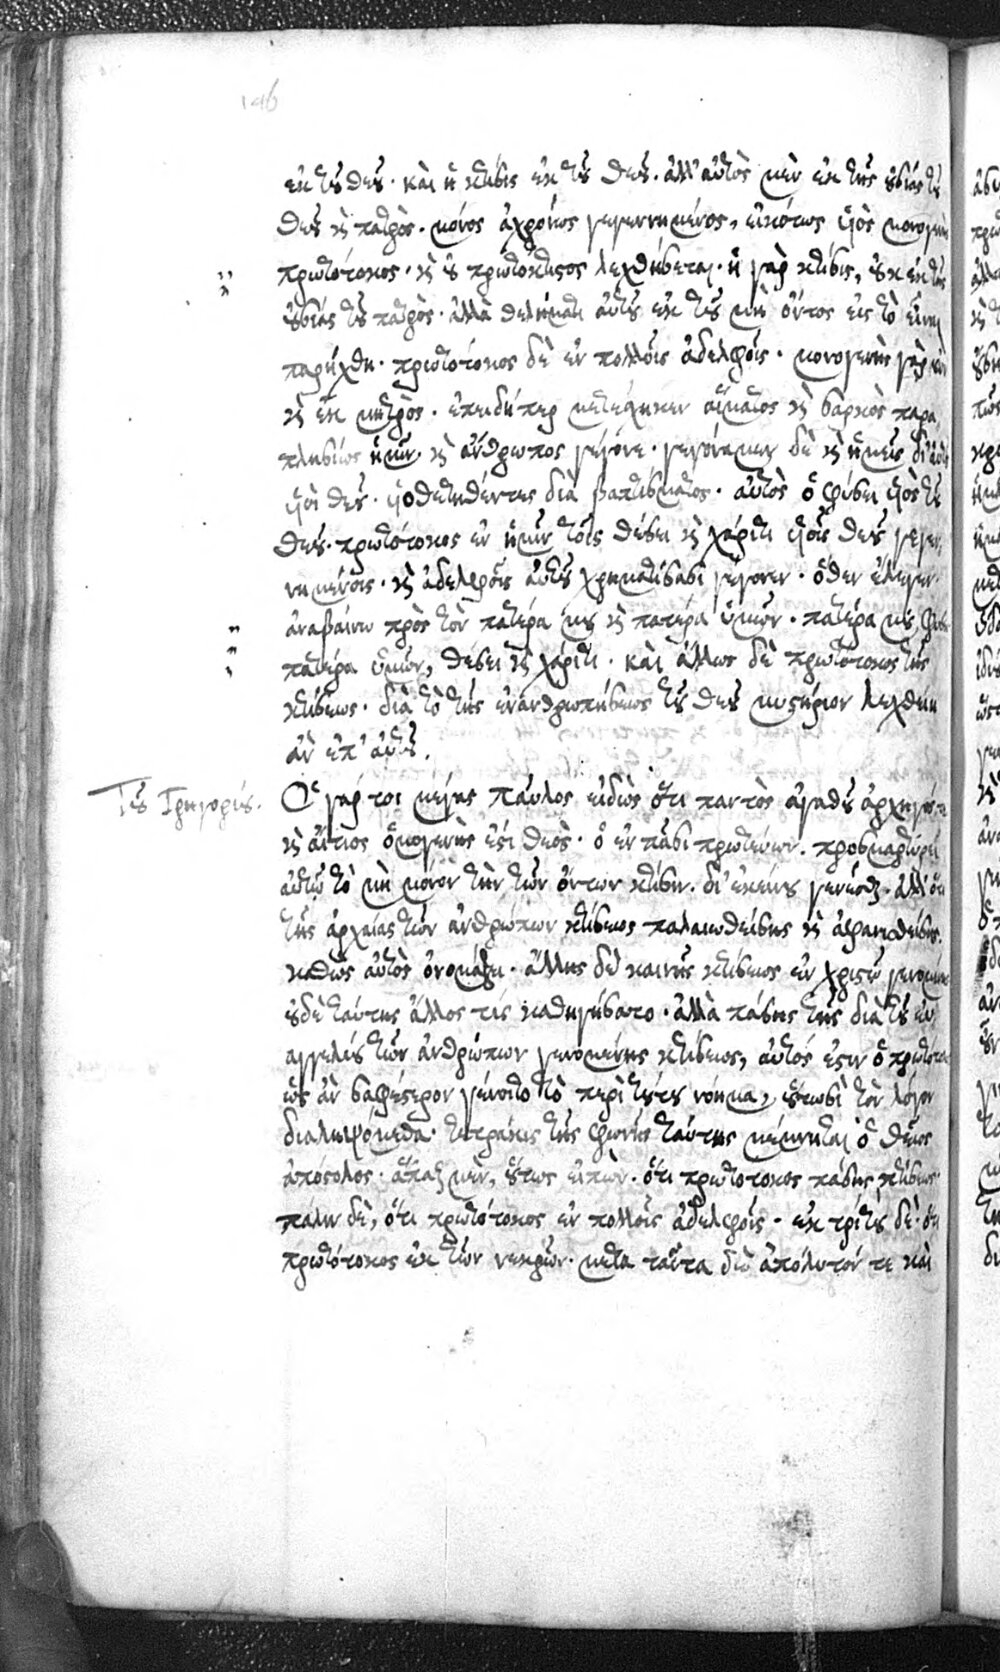 146
ἐκ τοῦ θεοῦ· καὶ ἡ κτίσις ἐκ τοῦ θεοῦ. ἀλλ' αὐτὸς μὲν ἐκ τῆς οὐσίας τοῦ
θεοῦ καὶ πατρὸς· μόνος ἀχρόνως γεγεννημένος, εἰκότως υἱὸς μονογενὴς
πρωτότοκος· καὶ οὐ πρωτόκτιστος λεχθήσεται· ἡ γὰρ κτίσις, οὐκ ἐκ τῆς
οὐσίας τοῦ πατρὸς· ἀλλὰ θελήματι αὐτοῦ ἐκ τοῦ μὴ ὄντος εἰς τὸ εἶναι
παρήχθη· πρωτότοκος δὲ ἐν πολλοῖς ἀδελφοῖς· μονογενὴς γὰρ
καὶ ἐκ μητρὸς· ἐπειδήπερ μετέσχηκεν αἵματος καὶ σαρκὸς παρα
πλησίως ἡμῖν· καὶ ἄνθρωπος γέγονε· γεγόναμεν δὲ καὶ ἡμεῖς δι' αὐτοῦ
υἱοὶ θεοῦ· υἱοθετηθέντες διὰ βαπτίσματος· αὐτὸς ὁ φύσει υἱὸς τοῦ
θεοῦ· πρωτότοκος ἐν ἡμῖν τοῖς θέσει καὶ χάριτι υἱοῖς θεοῦ γεγεν
νημένοις· καὶ ἀδελφοῖς αὐτοῦ χρηματίσασι γέγονεν· ὅθεν ἔλεγεν·
ἀναβαίνω πρὸς τὸν πατέρα μου καὶ πατέρα ὑμῶν· πατέρα μου, φύσει
πατέρα ὑμῶν, θέσει καὶ χάριτι· καὶ ἄλλως δὲ πρωτότοκος τῆς
κτίσεως· διὰ τὸ τῆς ἐνανθρωπήσεως τοῦ θεοῦ μυστήριον λεχθείη
ἂν ἐπ' αὐτοῦ.
Τοῦ Γρηγορίου·
Ὁ γάρ τοι μέγας παῦλος εἰδὼς ὅτι παντὸς ἀγαθοῦ ἀρχηγός τε
καὶ αἴτιος ὁ μονογενὴς ἐστι θεὸς· ὁ ἐν πᾶσι πρωτεύων· προσμαρτυρεῖ
αὐτῷ τὸ μὴ μόνον τὴν τῶν ὄντων κτίσιν· δι' ἐκείνου γενέσθαι· ἀλλ' ὅτι
τῆς ἀρχαίας τῶν ἀνθρώπων κτίσεως παλαιωθείσης καὶ ἀφανισθείσης·
καθὼς αὐτὸς ὀνομάζει· ἄλλης δὲ καινῆς κτίσεως ἐν χριστῷ γενομένης
οὐδὲ ταύτης ἄλλος τίς καθηγήσατο· ἀλλὰ πάσης τῆς διὰ τοῦ εὐ
αγγελίου τῶν ἀνθρώπων γενομένης κτίσεως, αὐτός ἐστιν ὁ πρωτότοκος
ὡς ἂν σαφέστερον γένοιτο τὸ περὶ τούτου νόημα, οὑτωσὶ τὸν λόγον
διαληψόμεθα· τετράκις τῆς φωνῆς ταύτης μέμνηται ὁ θεῖος
ἀπόστολος· ἅπαξ μὲν, οὕτως εἰπὼν· ὅτι πρωτότοκος πάσης κτίσεως·
πάλιν δὲ, ὅτι πρωτότοκος ἐν πολλοῖς ἀδελφοῖς· ἐκ τρίτου δὲ· ὅτι
πρωτότοκος ἐκ τῶν νεκρῶν· μετὰ ταῦτα δὲ ἀπόλυτόν τε καὶ